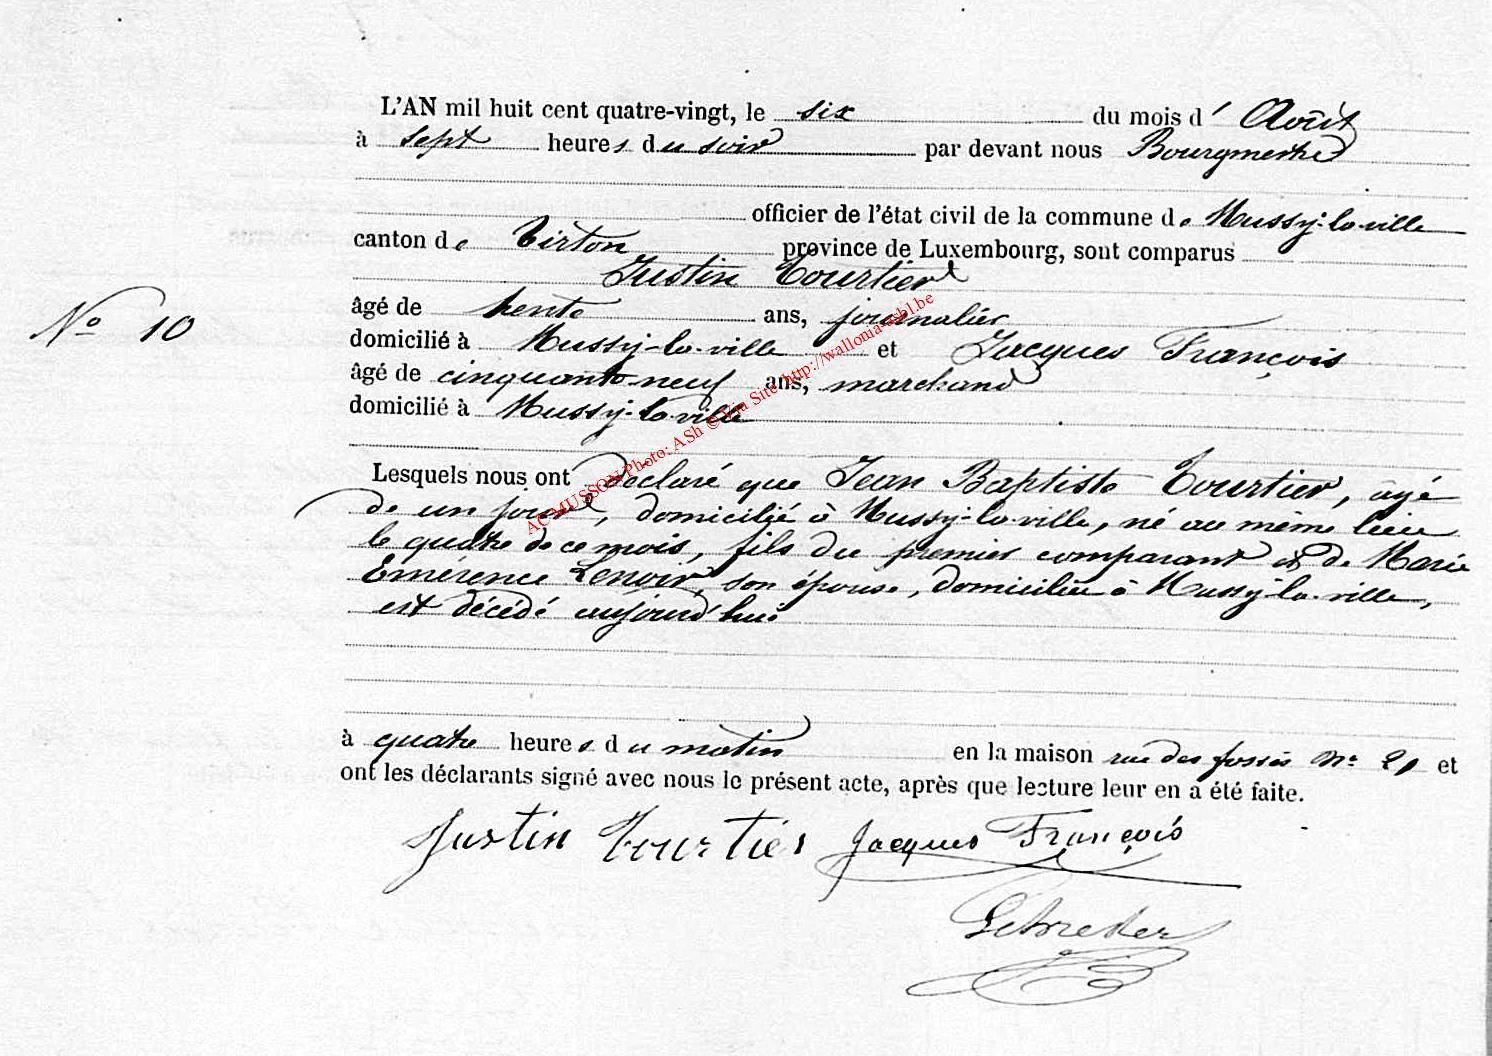 L'AN mil huit cent quatre-vingt, le six du mois d' Août
à sept heures du soir par devant nous Bourgmestre
officier de l'état civil de la commune de Mussy-la-ville
canton de Virton province de Luxembourg, sont comparus
Justin Tourtier
âgé de trente ans, journalier
N° 10
domicilié à Mussy-la-ville et Jacques François
âgé de cinquante-neuf ans, marchand
domicilié à Mussy-la-ville
AC MUSSON Photo: ASh © Via Site http://wallonia-asbl.be
Lesquels nous ont déclaré que Jean Baptiste Tourtier, âgé
de un jour, domicilié à Mussy-la-ville, né au même lieu
le quatre de ce mois, fils du premier comparant et de Marie
Emérence Lenoir, son épouse, domiciliée à Mussy-la-ville,
est décédé aujourd'hui
à quatre heures du matin en la maison rue des fossés n° 21 et
ont les déclarants signé avec nous le présent acte, après que lecture leur en a été faite.
Justin Tourtier Jacques François